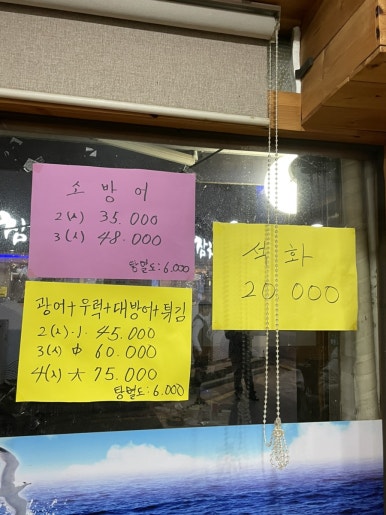 소 방 어
2(人) 35.000
3(人) 48.000
탕별도:6.000
광어+우럭+대방어+튀김
2(人)小 45.000
3(人) 中 60.000
4(人) 大 75.000
탕별도:6.000
석 화
20 000